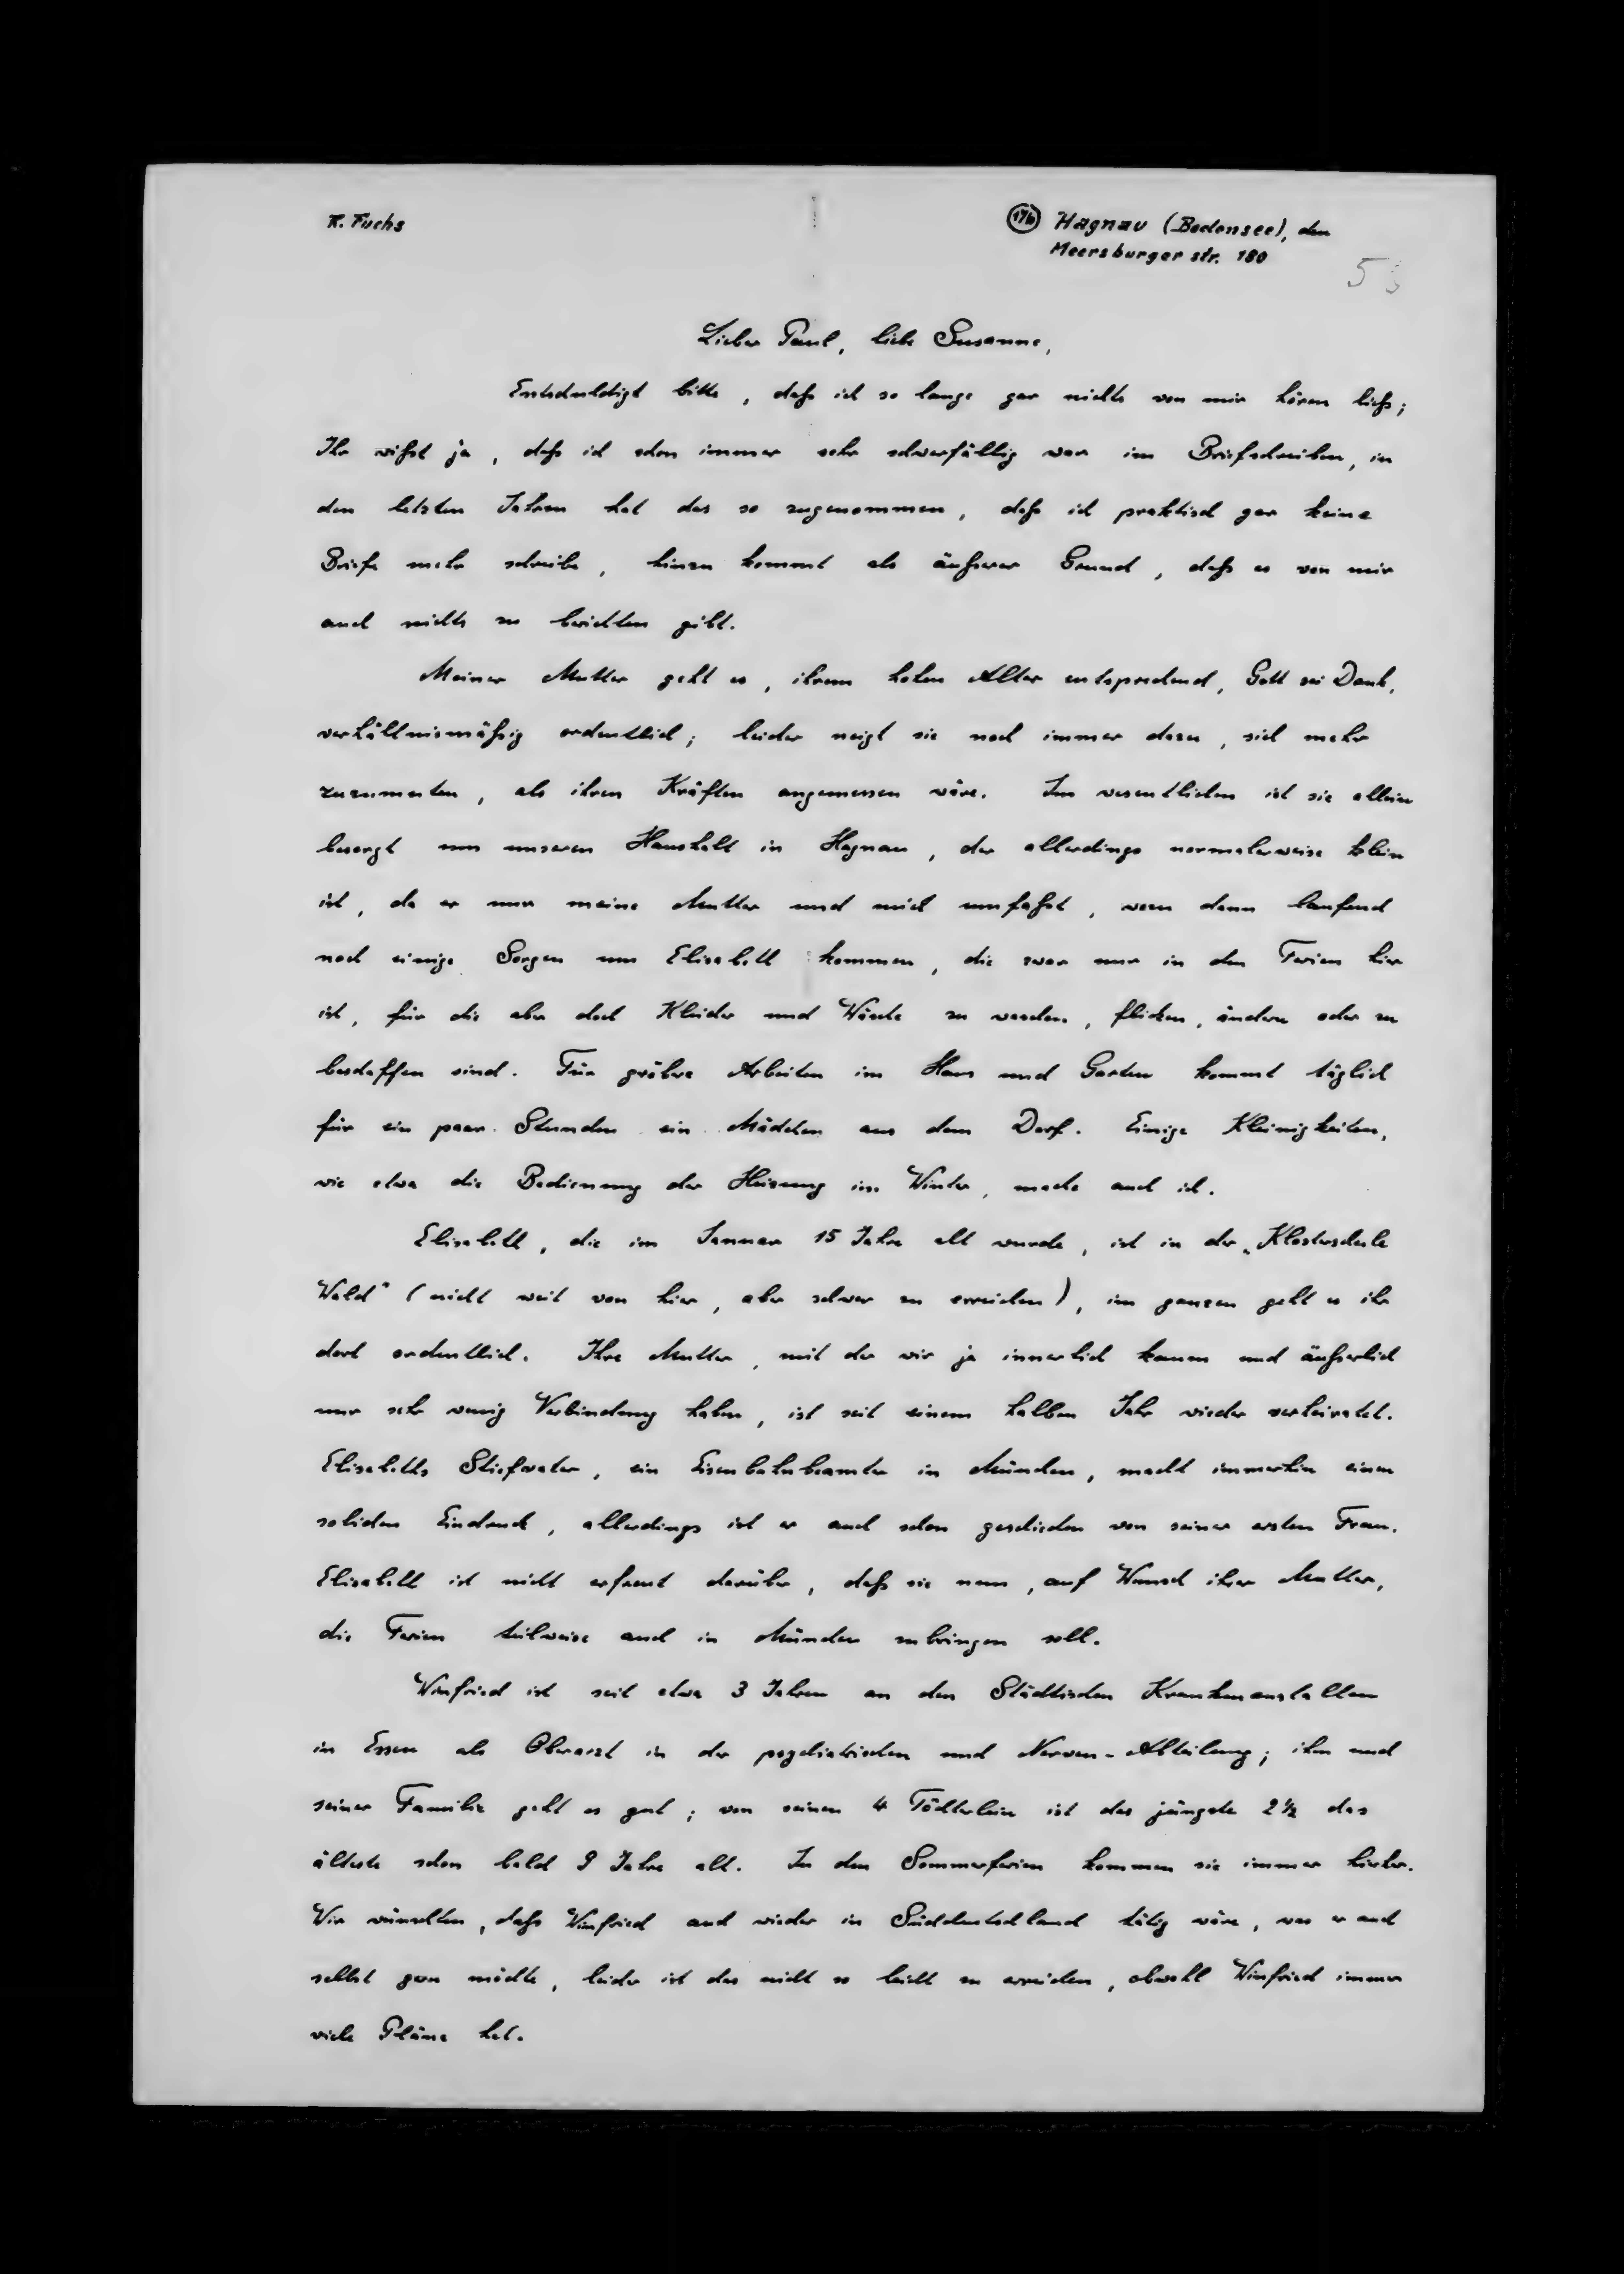 R. Fuchs
17b Hagnau (Bodensee), den
Meersburger str. 180
53
Lieber Paul, liebe Susanne,
Entschuldigt bitte, daß ich so lange gar nichts von mir hören ließ;
Ihr wißt ja, daß ich schon immer sehr schwerfällig war im Briefschreiben, in
den letzten Jahren hat das so zugenommen, daß ich praktisch gar keine
Briefe mehr schreibe, hinzu kommt als äußerer Grund, daß es von mir
auch nichts zu berichten gibt.
Meiner Mutter geht es, ihrem hohen Alter entsprechend, Gott sei Dank,
verhältnismäßig ordentlich; leider neigt sie noch immer dazu, sich mehr
zuzumuten, als ihren Kräften angemessen wäre. Im wesentlichen ist sie allein
besorgt um unseren Haushalt in Hagnau, der allerdings normalerweise klein
ist, da er nur meine Mutter und mich umfaßt, wozu dann laufend
noch einige Sorgen um Elisabeth kommen, die zwar nur in den Ferien hier
ist, für die aber doch Kleider und Wäsche zu waschen, flicken, ändern oder zu
beschaffen sind. Für gröbere Arbeiten im Haus und Garten kommt täglich
für ein paar Stunden ein Mädchen aus dem Dorf. Einige Kleinigkeiten,
wie etwa die Bedienung der Heizung im Winter, mache auch ich.
Elisabeth, die im Januar 15 Jahre alt wurde, ist in der „Klosterschule
Wald" (nicht weit von hier, aber schwer zu erreichen), im ganzen geht es ihr
dort ordentlich. Ihre Mutter, mit der wir ja innerlich kaum und äußerlich
nur sehr wenig Verbindung haben, ist seit einem halben Jahr wieder verheiratet.
Elisabeths Stiefvater, ein Eisenbahnbeamter in München, macht immerhin einen
soliden Eindruck, allerdings ist er auch schon geschieden von seiner ersten Frau.
Elisabeth ist nicht erfreut darüber, daß sie nun, auf Wunsch ihrer Mutter,
die Ferien teilweise auch in München zubringen soll.
Winfried ist seit etwa 3 Jahren an den Städtischen Krankenanstalten
in Essen als Oberarzt in der psychiatrischen und Nerven-Abteilung; ihm und
seiner Familie geht es gut; von seinen 4 Töchterlein ist das jüngste 2 1/2 das
älteste schon bald 9 Jahre alt. In den Sommerferien kommen sie immer hierher.
Wir wünschten, daß Winfried auch wieder in Süddeutschland tätig wäre, was er auch
selbst gern möchte, leider ist das nicht so leicht zu erreichen, obwohl Winfried immer
viele Pläne hat.